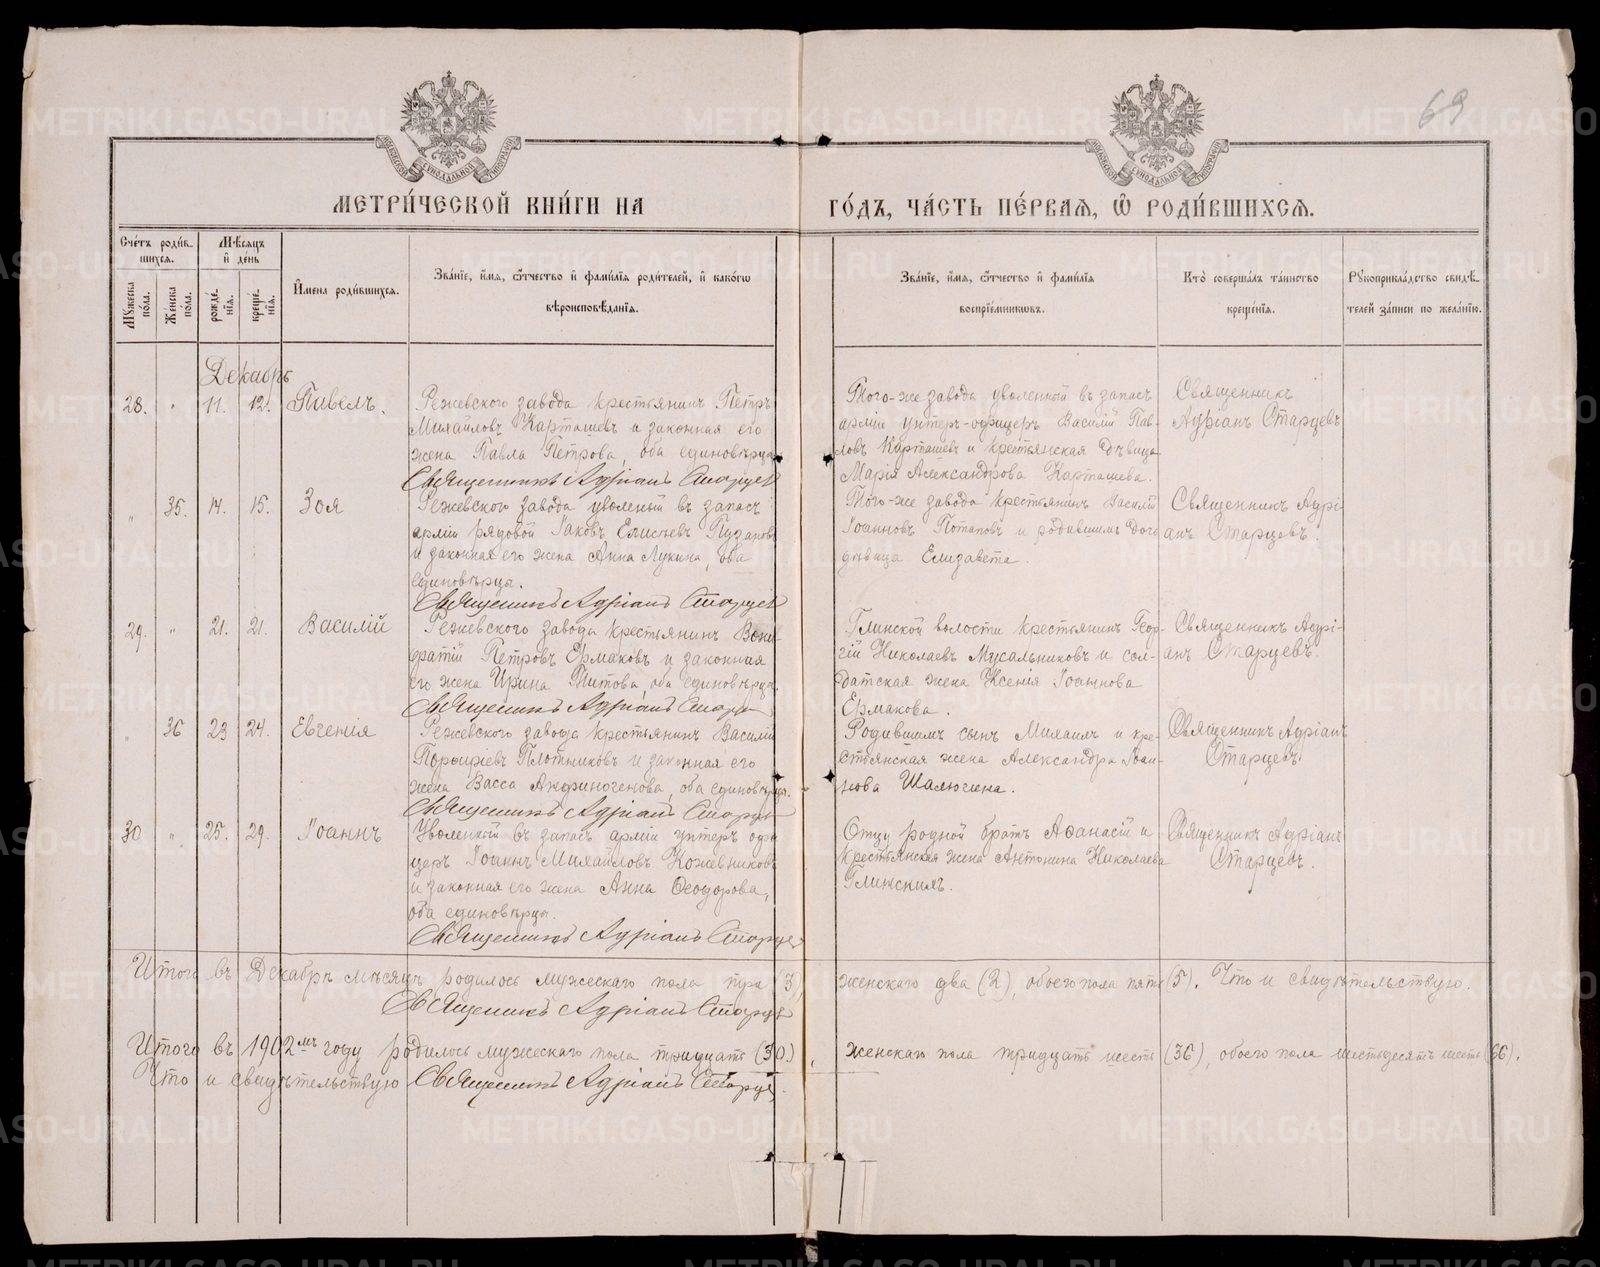 69
МЕТРИ́ЧЕСКОЙ КНИ́ГИ НА ГО́ДЪ, ЧА́СТЬ ПЕ́РВАЯ, Ѡ РОДИ́ВШИХСЯ.
Сче́тъ роди́в-
шихся.
Мѣсяцъ
и день
Мꙋжеска по́ла.
Же́нска по́ла.
рожде́нїя.
креще́нїя.
И́мена роди́вшихся.
Зва́нїе, и́мя, ѻ́тчество и фами́лїя роди́телей, и како́гѡ
вѣроисповѣ́данїя.
Зва́нїе, и́мя, ѻ́тчество и фами́лїя
воспрїе́мниковъ.
Кто̀ соверша́лъ та́инство
креще́нїя.
Рꙋкоприкла́дство свидѣ́-
телей за́писи по жела́нїю.
Декабрь
28. " 11. 12. Павелъ.
Режевского завода крестьянинъ Петръ
Михайловъ Карташевъ и законная его
жена Павла Петрова, оба единовѣрца
Священникъ Адріанъ Старцев
Того-же завода уволенный въ запасъ
арміи унтеръ-офицеръ Василій Пав-
ловъ Карташевъ и крестьянская дѣвица
Марія Александрова Карташева.
Священникъ
Адріанъ Старцевъ
" 35. 14. 15. Зоя
Режевского завода уволеный въ запасъ
арміи рядовой Іаковъ Елисѣевъ Пузановъ
и законная его жена Анна Лукина, оба
единовѣрцы.
Священникъ Адріанъ Старцев
Того-же завода крестьянинъ Василій
Іоанновъ Потаповъ и родившимъ дочь
дѣвица Елизавета.
Священникъ Адрі-
анъ Старцевъ.
29. " 21. 21. Василій
Режевского завода крестьянинъ Вони-
фатій Петровъ Ермаковъ и законная
его жена Ирина Титова, оба единовѣрцы.
Священникъ Адріанъ Старц
Глинской волости крестьянинъ Геор-
гій Николаевъ Мусальниковъ и сол-
датская жена Ксенія Іоаннова
Ермакова.
Священникъ Адрі-
анъ Старцевъ.
" 36 23 24. Евгенія
Режевского завода крестьянинъ Василій
Порфиріевъ Плотниковъ и законная его
жена Васса Анфиногенова, оба единовѣрцы.
Священникъ Адріанъ Старцев
Родившимъ сынъ Михаилъ и кре-
стьянская жена Александра Іоан-
нова Шалюгина.
Священникъ Адріанъ
Старцевъ
30 " 25. 29. Іоаннъ
Уволенный въ запасъ арміи унтеръ офи
церъ Іоаннъ Михайловъ Кожевниковъ
и законная его жена Анна Ѳеодорова,
оба единовѣрцы.
Священникъ Адріанъ Старцев
Отцу родной братъ Аѳанасій и
крестьянская жена Антонина Николаева
Глинскихъ.
Священникъ Адріанъ
Старцевъ.
Итого въ Декабрѣ мѣсяцѣ родилось мужескаго пола три (3), женскаго два (2), обоего пола пять (5). Что и свидѣтельствую.
Священникъ Адріанъ Старцев
Итого въ 1902мъ году родилось мужескаго пола тридцать (30), женскаго пола тридцать шесть (36), обоего пола шестьдесятъ шесть (66).
Что и свидѣтельствую Священникъ Адріанъ Старцев.